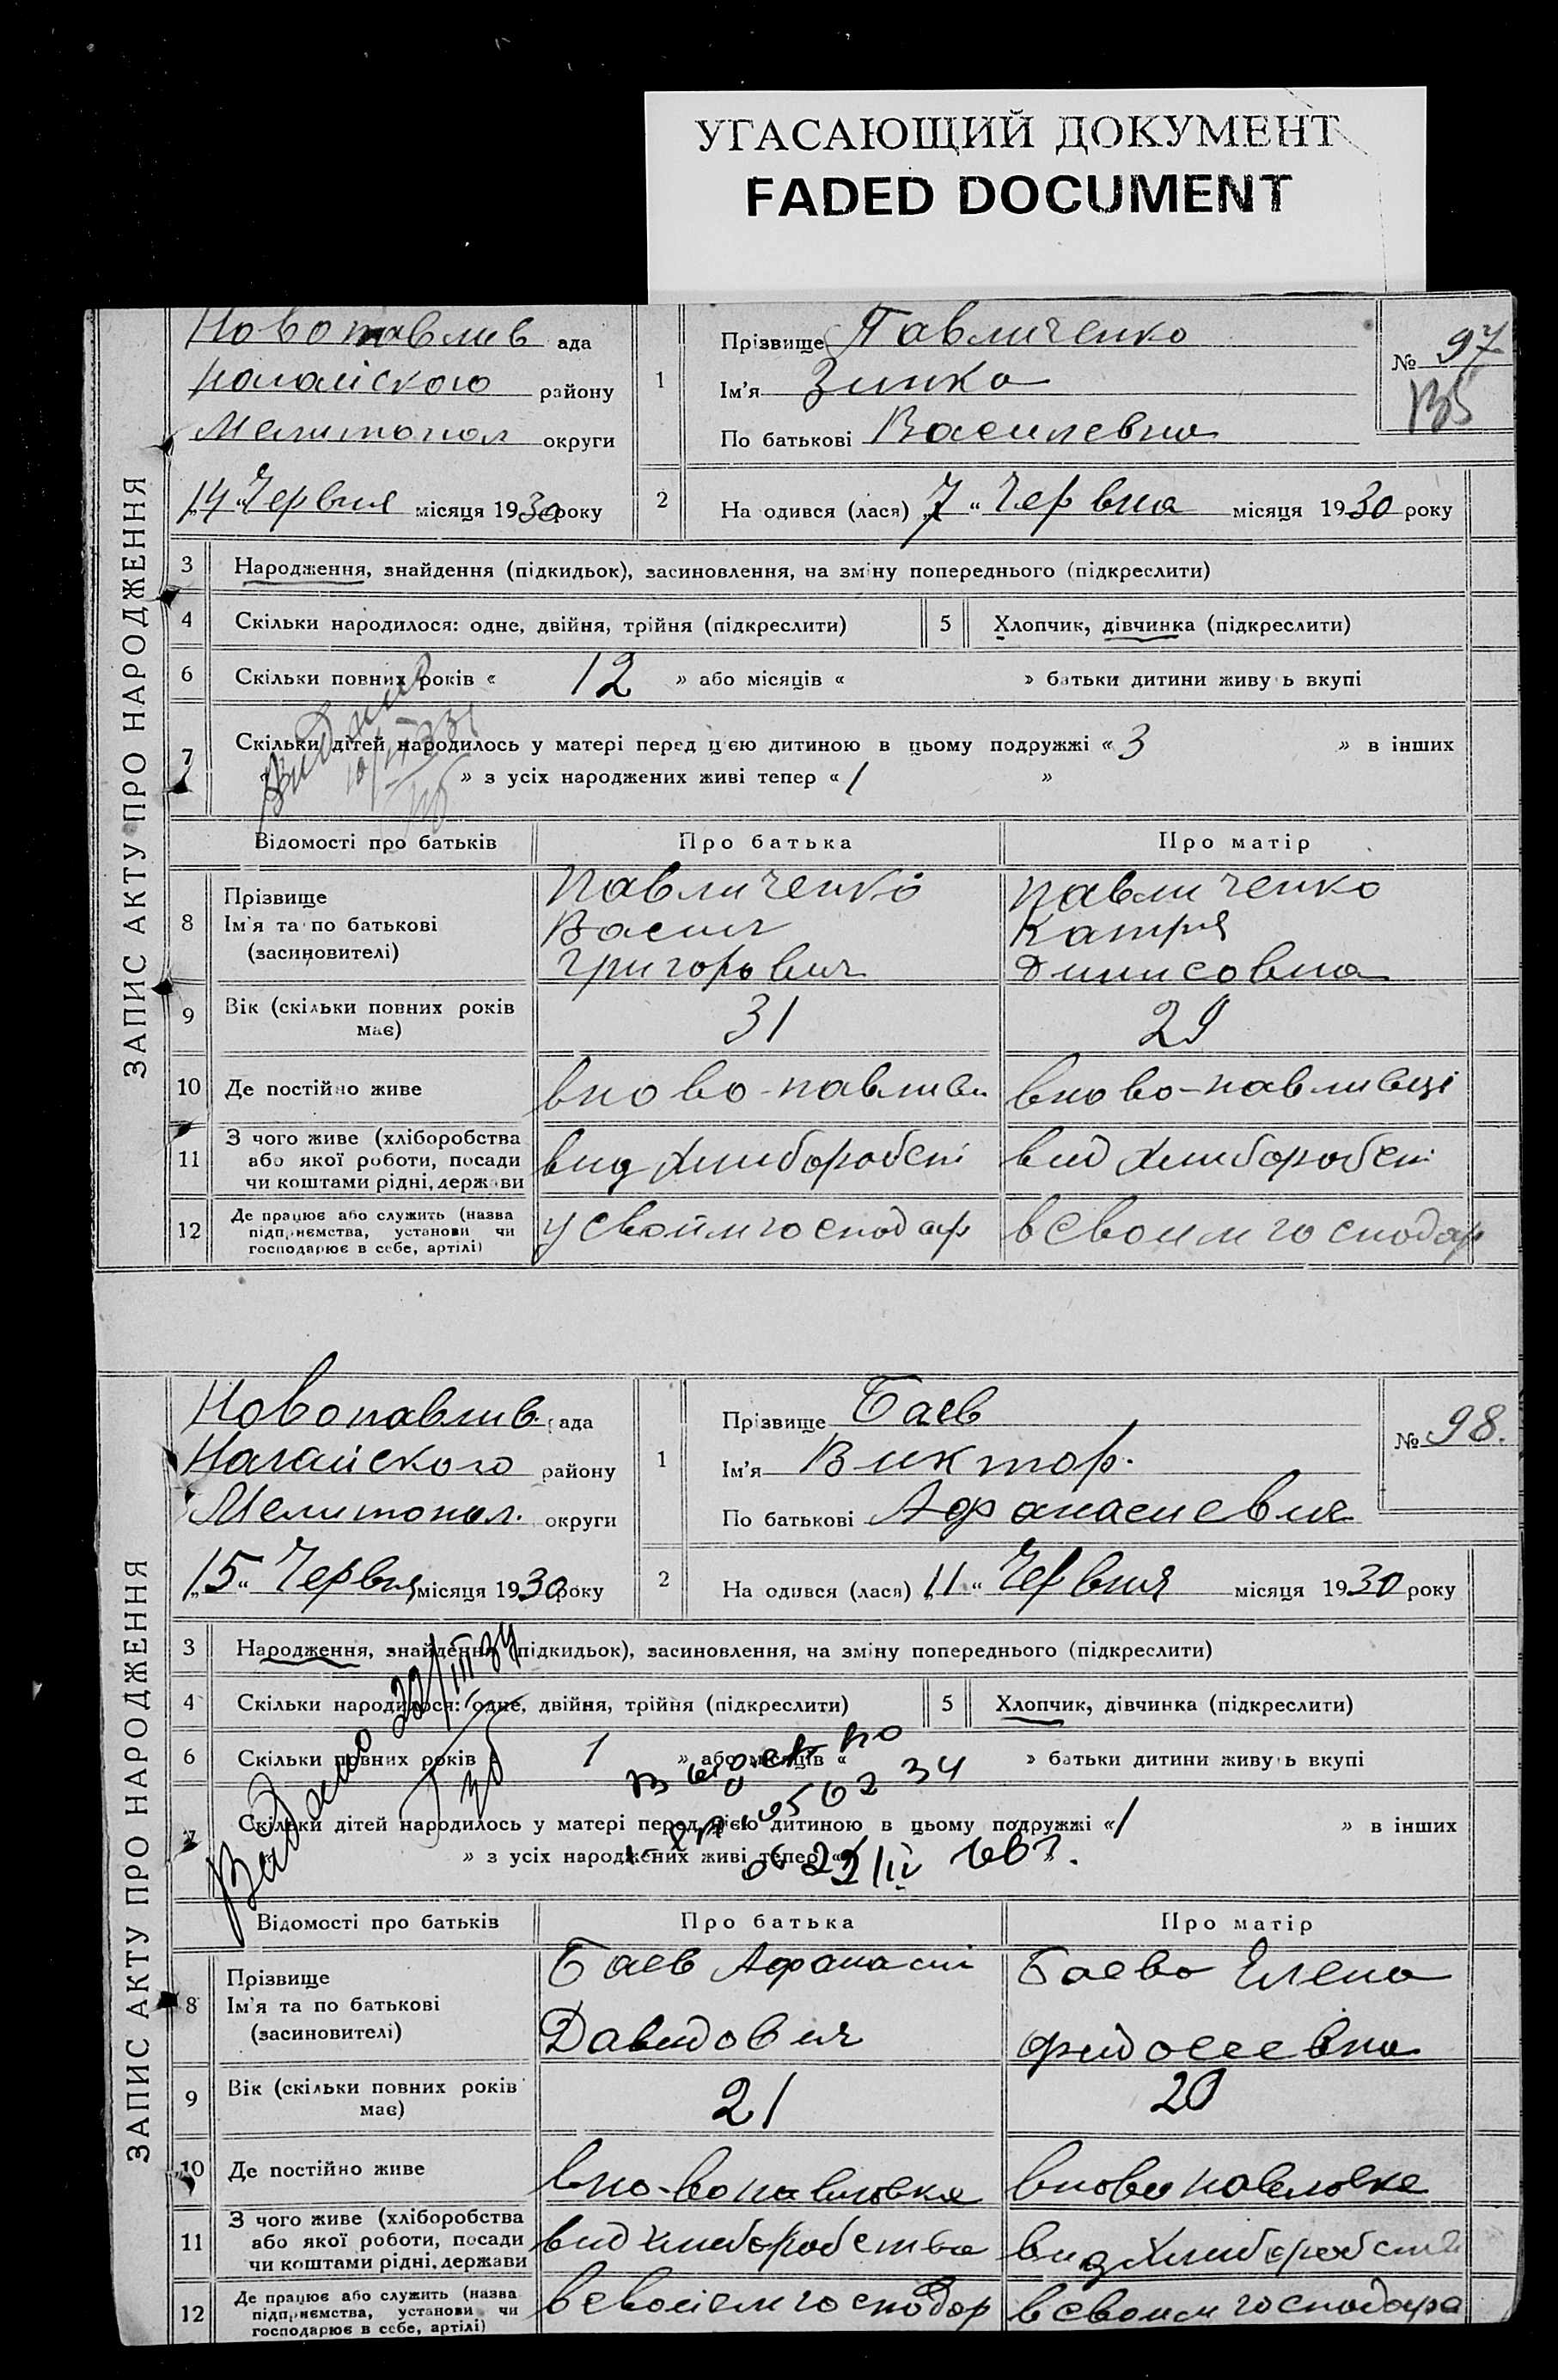 УГАСАЮЩИЙ ДОКУМЕНТ
FADED DOCUMENT
ЗАПИС АКТУ ПРО НАРОДЖЕННЯ
Новопавлив ада
Нагайского району
Мелитопол округи
„14“ Червня місяця 1930 року
1 Прізвище Павличенко
Ім'я Зинка
По батькові Василевна
№ 97
2 На одився (лася) „7“ Червна місяця 1930 року
3 Народження, знайдення (підкидьок), засиновлення, на зміну попереднього (підкреслити)
4 Скільки народилося: одне, двійня, трійня (підкреслити) 5 Хлопчик, дівчинка (підкреслити)
6 Скільки повних років « 12 » або місяців « » батьки дитини живу ь вкупі
7 Скільки дітей народилось у матері перед цією дитиною в цьому подружжі « 3 » в інших
» з усіх народжених живі тепер « 1 »
Відомості про батьків Про батька Про матір
8 Прізвище
Ім'я та по батькові
(засиновителі)
Павличенко
Васил
Григорович
Павличенко
Катря
Динисовна
9 Вік (скільки повних років має) 31 29
10 Де постійно живе вново-павливи вново-павливці
11 З чого живе (хліборобства
або якої роботи, посади
чи коштами рідні, держави
вид хлиборобст вид хлиборобст
12 Де працює або служить (назва
підприємства, установи чи
господарює в себе, артілі)
у своїм господар в своим господар
ЗАПИС АКТУ ПРО НАРОДЖЕННЯ
Новопавлив. ада
Нагайского району
Мелитопол. округи
„15“ Червня місяця 1930 року
1 Прізвище Баев
Ім'я Виктор.
По батькові Афанасиевич
№ 98.
2 На одився (лася) „11“ Червня місяця 1930 року
3 Народження, знайдення (підкидьок), засиновлення, на зміну попереднього (підкреслити)
4 Скільки народилося: одне, двійня, трійня (підкреслити) 5 Хлопчик, дівчинка (підкреслити)
6 Скільки повних років « 1 » або місяців « » батьки дитини живу ь вкупі
7 Скільки дітей народилось у матері перед цією дитиною в цьому подружжі « 1 » в інших
» з усіх народжених живі тепер «
Видано 22/III 34
Відомості про батьків Про батька Про матір
8 Прізвище
Ім'я та по батькові
(засиновителі)
Баев Афанасий
Давидович
Баева Елена
Фидосеевна
9 Вік (скільки повних років має) 21 20
10 Де постійно живе вно-вопавловке вновопавловке
11 З чого живе (хліборобства
або якої роботи, посади
чи коштами рідні, держави
вид хлиборобства вид хлиборобства
12 Де працює або служить (назва
підприємства, установи чи
господарює в себе, артілі)
в своїем господар в своим господара